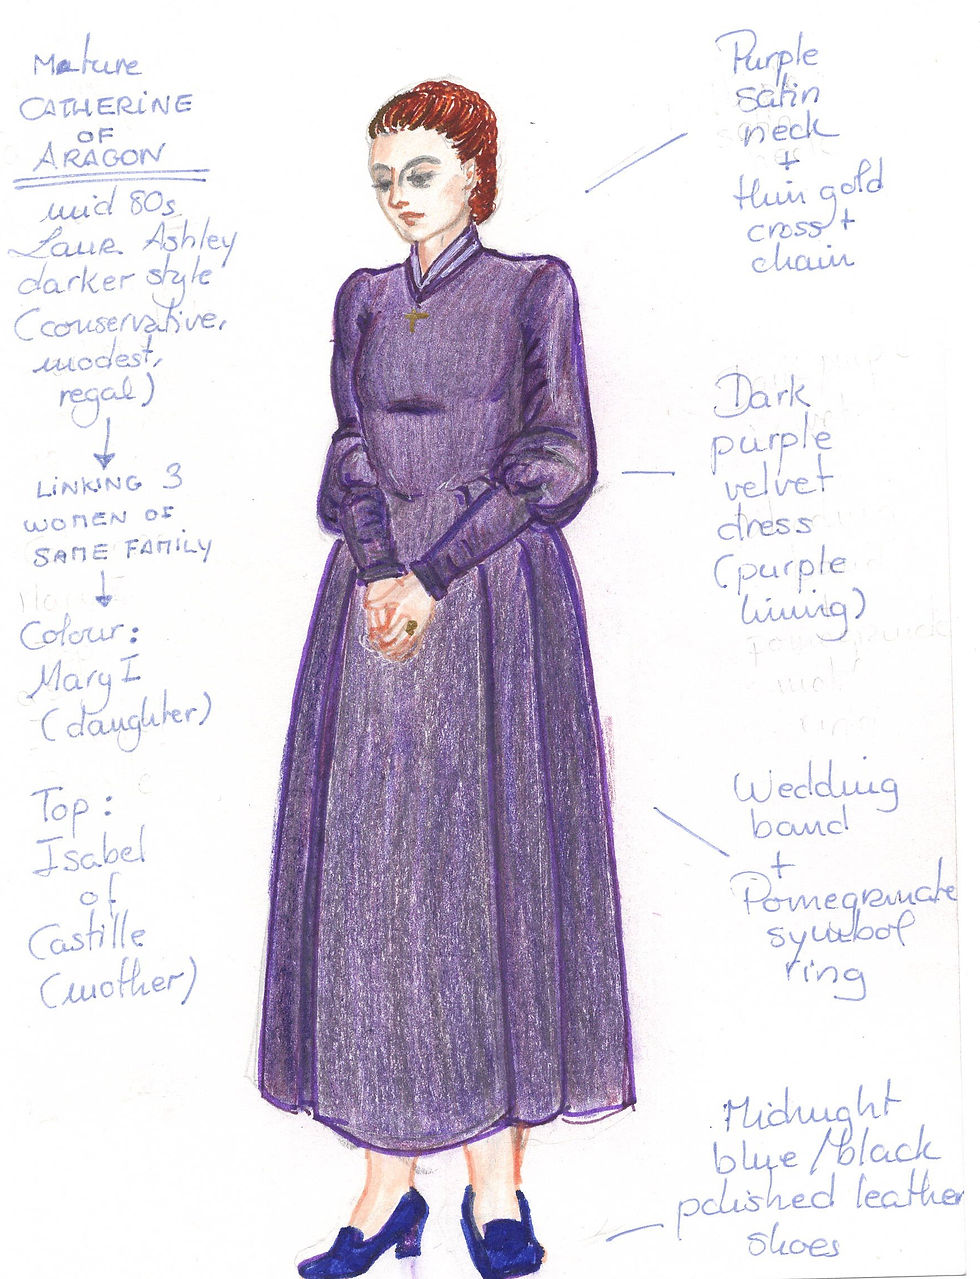 Mature
CATHERINE
OF
ARAGON
mid 80s
Laura Ashley
darker style
(conservative,
modest,
regal)
LINKING 3
WOMEN OF
SAME FAMILY
Colour:
Mary I
(daughter)
Top:
Isabel
of
Castille
(mother)
Purple
satin
neck
+
thin gold
cross +
chain
Dark
purple
velvet
dress
(purple
lining)
Wedding
band
+
Pomegranate
symbol
ring
Midnight
blue/black
polished leather
shoes